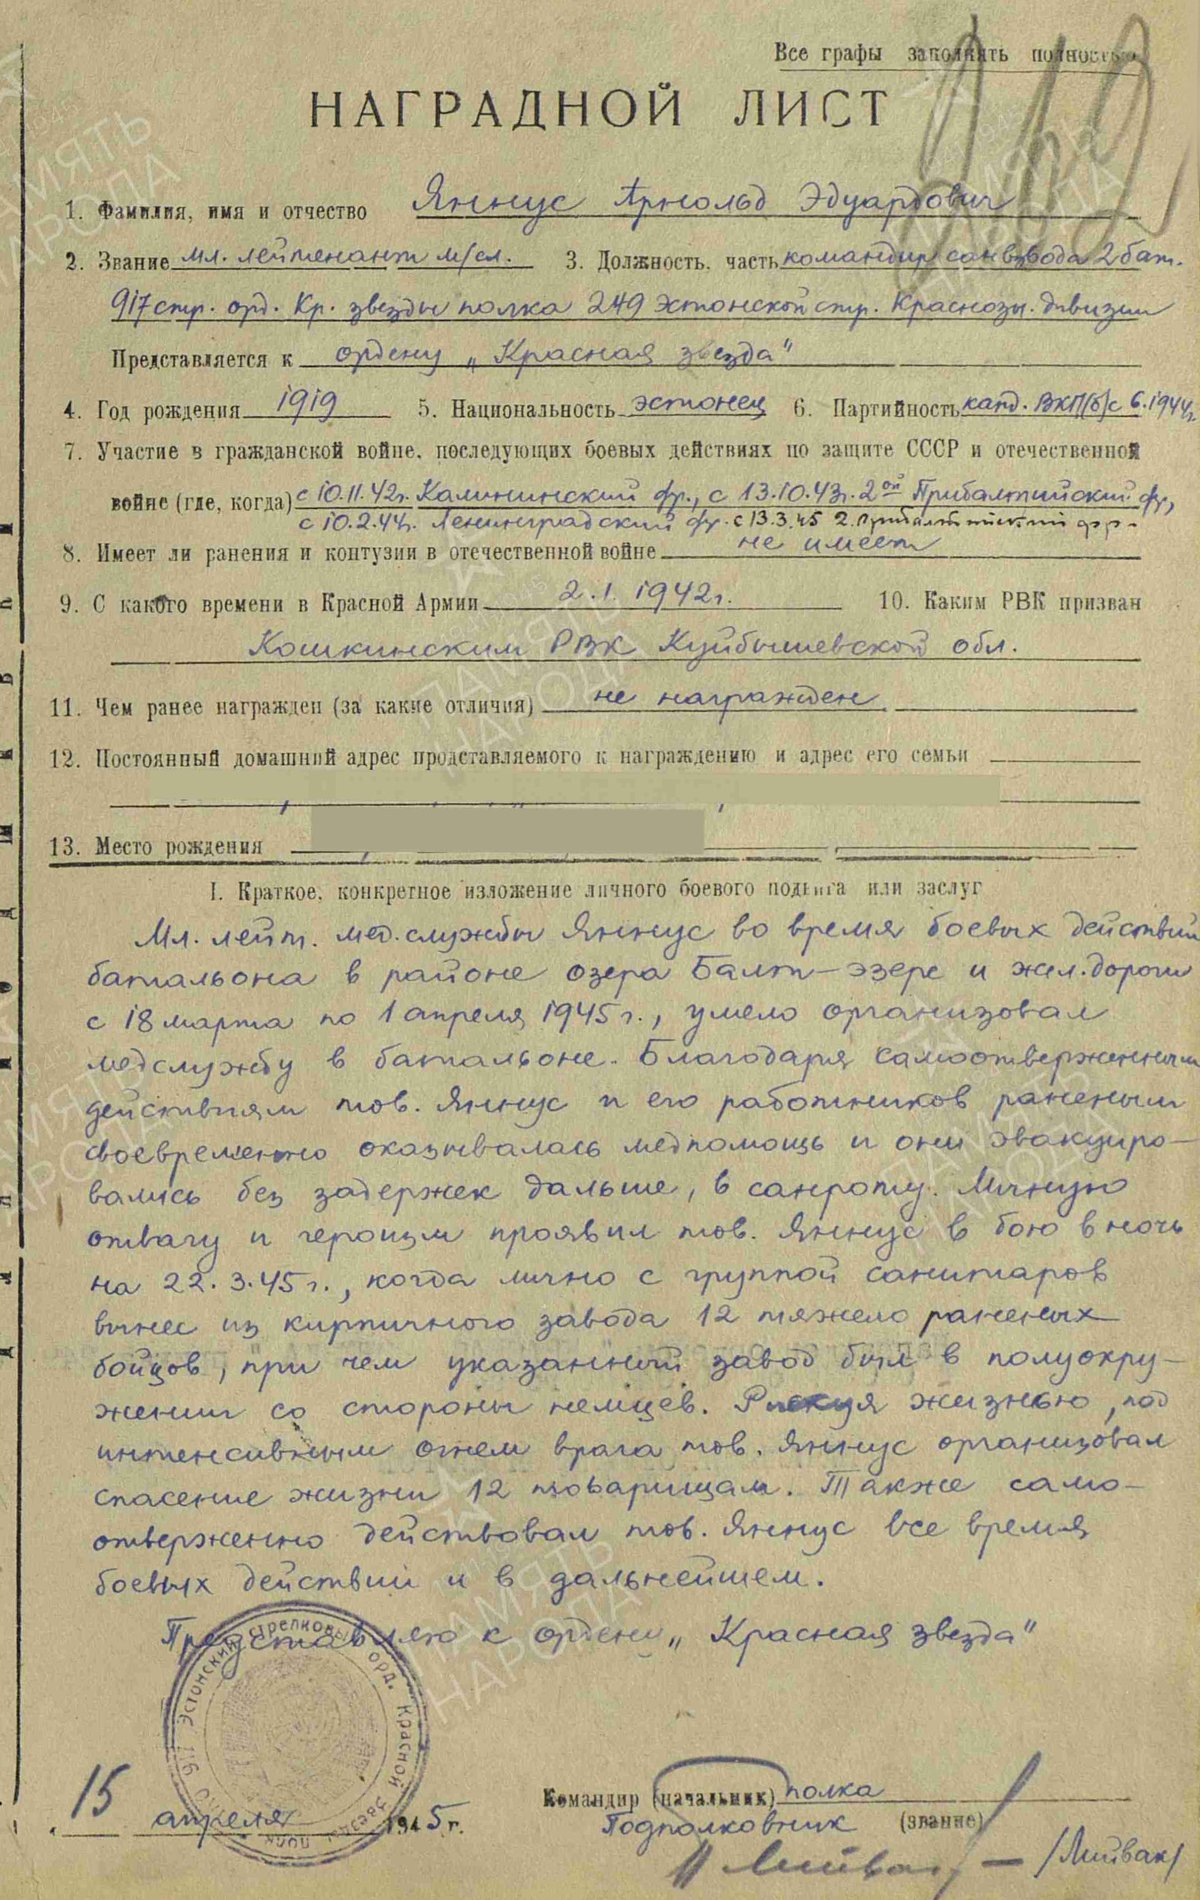 Все графы заполнять полностью
269
НАГРАДНОЙ ЛИСТ
1. Фамилия, имя и отчество Яннус Арнольд Эдуардович
2. Звание мл. лейтенант м/сл. 3. Должность, часть командир санвзвода 2 бат.
917 стр. орд. Кр. звезды полка 249 Эстонской стр. Краснозн. дивизии
Представляется к ордену „Красная звезда"
4. Год рождения 1919 5. Национальность эстонец 6. Партийность канд. ВКП(б) с 6.1944г.
7. Участие в гражданской войне, последующих боевых действиях по защите СССР и отечественной
войне (где, когда) с 10.11.42г. Калининский фр., с 13.10.43г. 2ой Прибалтийский фр,
с 10.2.44г. Ленинградский фр. с 13.3.45 2. Прибалтийский фр.
8. Имеет ли ранения и контузии в отечественной войне не имеет
9. С какого времени в Красной Армии 2.1.1942г. 10. Каким РВК призван
Кошкинским РВК Куйбышевской обл.
11. Чем ранее награжден (за какие отличия) не награжден
12. Постоянный домашний адрес представляемого к награждению и адрес его семьи
13. Место рождения
I. Краткое, конкретное изложение личного боевого подвига или заслуг
Мл. лейт. мед. службы Яннус во время боевых действий
батальона в районе озера Балт-эзере и жел. дороги
с 18 марта по 1 апреля 1945 г., умело организовал
медслужбу в батальоне. Благодаря самоотверженным
действиям тов. Яннус и его работников раненым
своевременно оказывалась медпомощь и они эвакуиро-
вались без задержек дальше, в санроту. Личную
отвагу и героизм проявил тов. Яннус в бою в ночь
на 22.3.45 г., когда лично с группой санитаров
вынес из кирпичного завода 12 тяжело раненых
бойцов, при чем указанный завод был в полуокру-
жении со стороны немцев. Рискуя жизнью, под
интенсивным огнем врага тов. Яннус организовал
спасение жизни 12 товарищам. Также само-
отверженно действовал тов. Яннус все время
боевых действий и в дальнейшем.
Представляю к ордену „Красная звезда"
917 Эстонский стрелковый орд. Красной Звезды полк
15 апреля 1945 г.
Командир (начальник) полка
Подполковник (звание)
/Лийвак/
ПАМЯТЬ НАРОДА